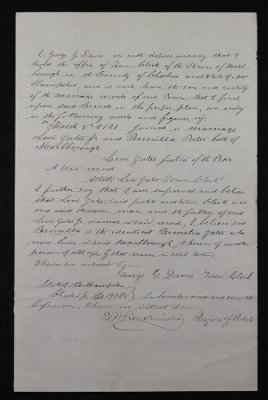 I, George G. Davis on oath depose and say that I
hold the office of Town Clerk of the Town of Marl-
borough in the County of Cheshire and State of New
Hampshire, and as such have the care and custody
of the marriage records of said Town. That I find
upon said Record in the proper place, an entry
in the following words and figures, viz.
"March 8th 1821 joined in marriage
Levi Gates Jr and Permillia Porter both of
Marlborough.
Levi Gates Justice of the Peace
A true record
Attest Levi Gates Town Clerk"
I further say that I am informed and believe
that Levi Gates said Justice and town Clerk was
one and the same man and the father of said
Levi Gates Jr named in said record, I believe said
Permillia is the identical Permelia Gates who
now lives in said Marlborough, I know of no other
person of old age of that name in said town
George G. Davis Town Clerk
State of New Hampshire
Cheshire ss. Subscribed and sworn to
before me, I have no interest
Register of Probate